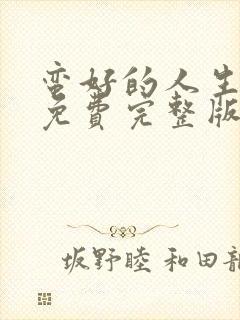 蛮好的人生
免费完整版
坂野睦 和田韶